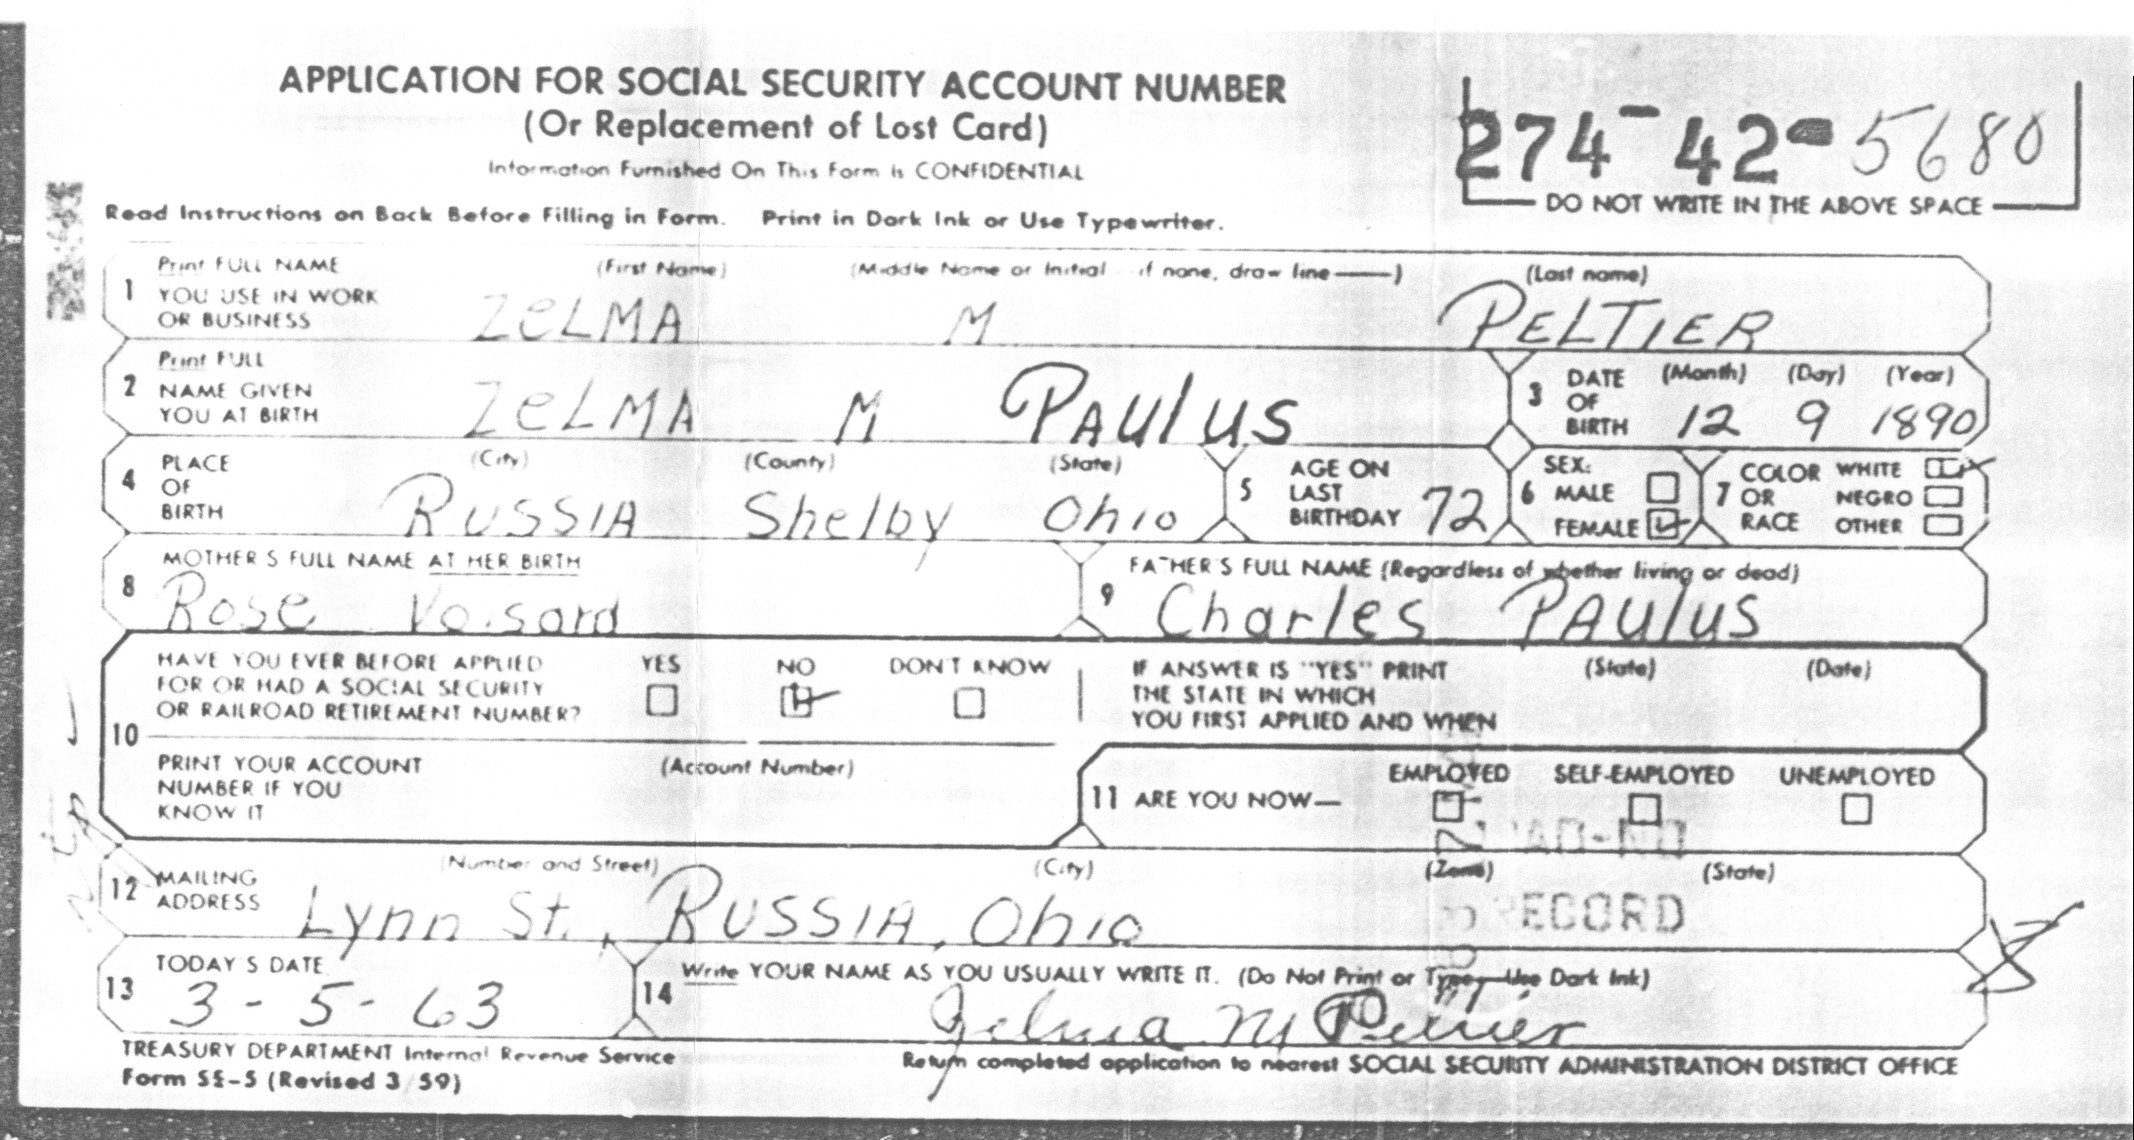 APPLICATION FOR SOCIAL SECURITY ACCOUNT NUMBER
(Or Replacement of Lost Card)
Information Furnished On This Form is CONFIDENTIAL
274-42-5680
DO NOT WRITE IN THE ABOVE SPACE
Read Instructions on Back Before Filling in Form. Print in Dark Ink or Use Typewriter.
1 Print FULL NAME YOU USE IN WORK OR BUSINESS
(First Name) (Middle Name or Initial - if none, draw line ——) (Last name)
ZELMA M PELTIER
2 Print FULL NAME GIVEN YOU AT BIRTH
ZELMA M PAULUS
3 DATE OF BIRTH (Month) (Day) (Year)
12 9 1890
4 PLACE OF BIRTH (City) (County) (State)
RUSSIA Shelby Ohio
5 AGE ON LAST BIRTHDAY 72
6 SEX: MALE FEMALE
7 COLOR OR RACE WHITE NEGRO OTHER
8 MOTHER'S FULL NAME AT HER BIRTH
Rose Voisard
9 FATHER'S FULL NAME (Regardless of whether living or dead)
Charles PAULUS
10 HAVE YOU EVER BEFORE APPLIED FOR OR HAD A SOCIAL SECURITY OR RAILROAD RETIREMENT NUMBER?
YES NO DON'T KNOW
IF ANSWER IS "YES" PRINT THE STATE IN WHICH YOU FIRST APPLIED AND WHEN
(State) (Date)
PRINT YOUR ACCOUNT NUMBER IF YOU KNOW IT
(Account Number)
11 ARE YOU NOW— EMPLOYED SELF-EMPLOYED UNEMPLOYED
12 MAILING ADDRESS (Number and Street) (City) (Zone) (State)
Lynn St., RUSSIA, Ohio
RECORD
13 TODAY'S DATE
3-5-63
14 Write YOUR NAME AS YOU USUALLY WRITE IT. (Do Not Print or Type—Use Dark Ink)
Zelma M Peltier
TREASURY DEPARTMENT Internal Revenue Service
Form SS-5 (Revised 3/59)
Return completed application to nearest SOCIAL SECURITY ADMINISTRATION DISTRICT OFFICE